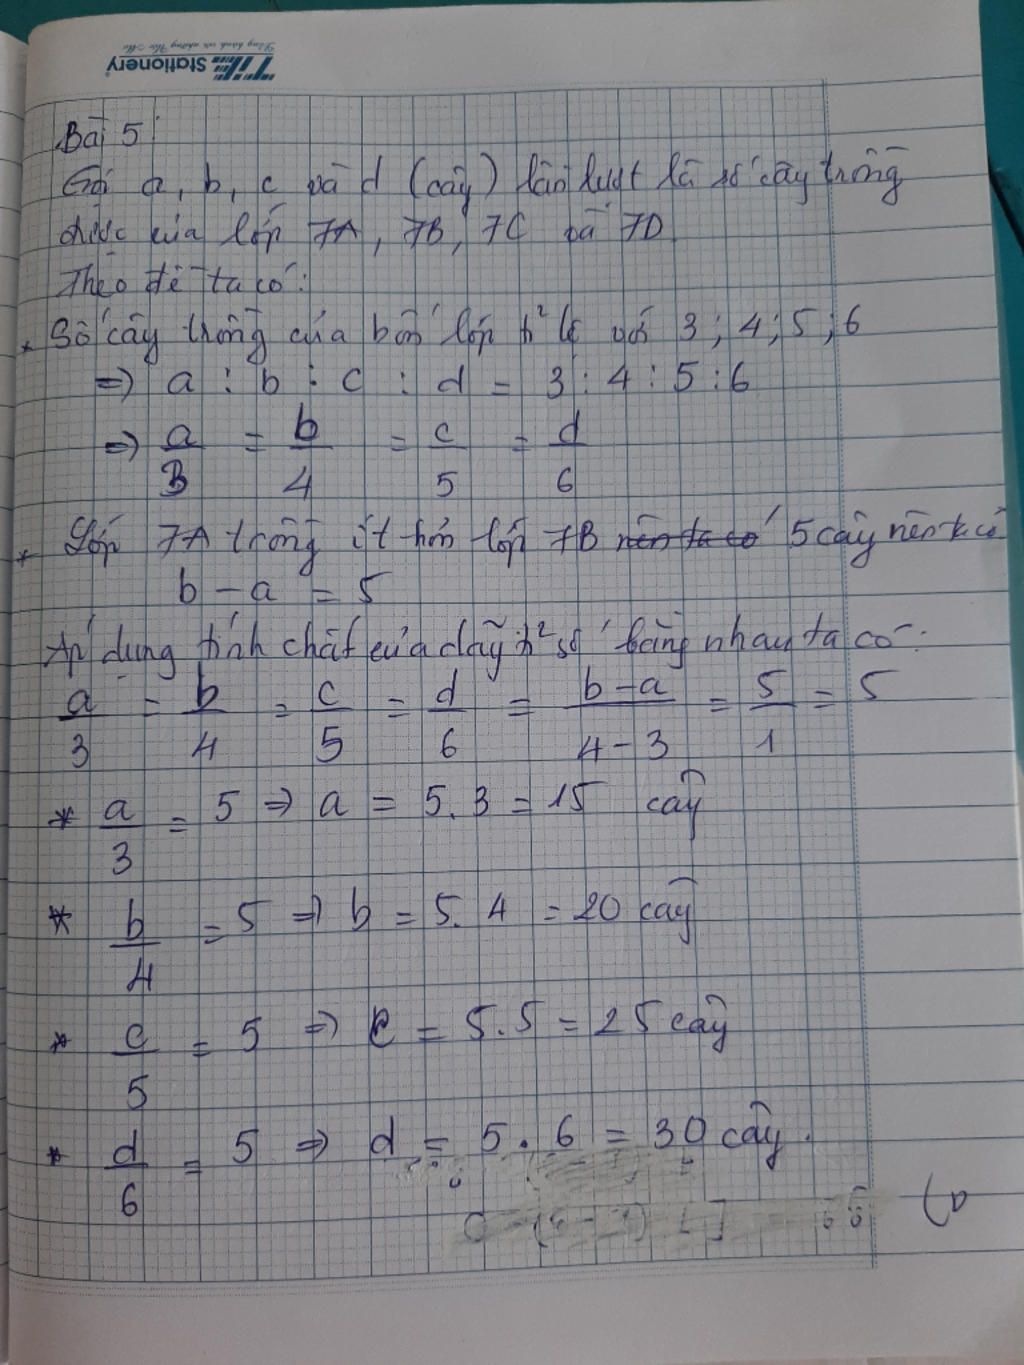 TIE Stationery
Bài 5:
Gọi a, b, c và d (cây) lần lượt là số cây trồng
được của lớp 7A, 7B, 7C và 7D
Theo đề ta có:
* Số cây trồng của bốn lớp t² lệ với 3; 4; 5; 6
=> a : b : c : d = 3 : 4 : 5 : 6
=> a/3 = b/4 = c/5 = d/6
* Lớp 7A trồng ít hơn lớp 7B nên ta có 5 cây nên ta có
b - a = 5
Áp dụng tính chất của dãy t² số bằng nhau ta có:
a/3 = b/4 = c/5 = d/6 = b-a/4-3 = 5/1 = 5
* a/3 = 5 => a = 5.3 = 15 cây
* b/4 = 5 => b = 5.4 = 20 cây
* c/5 = 5 => c = 5.5 = 25 cây
* d/6 = 5 => d = 5.6 = 30 cây.
a)